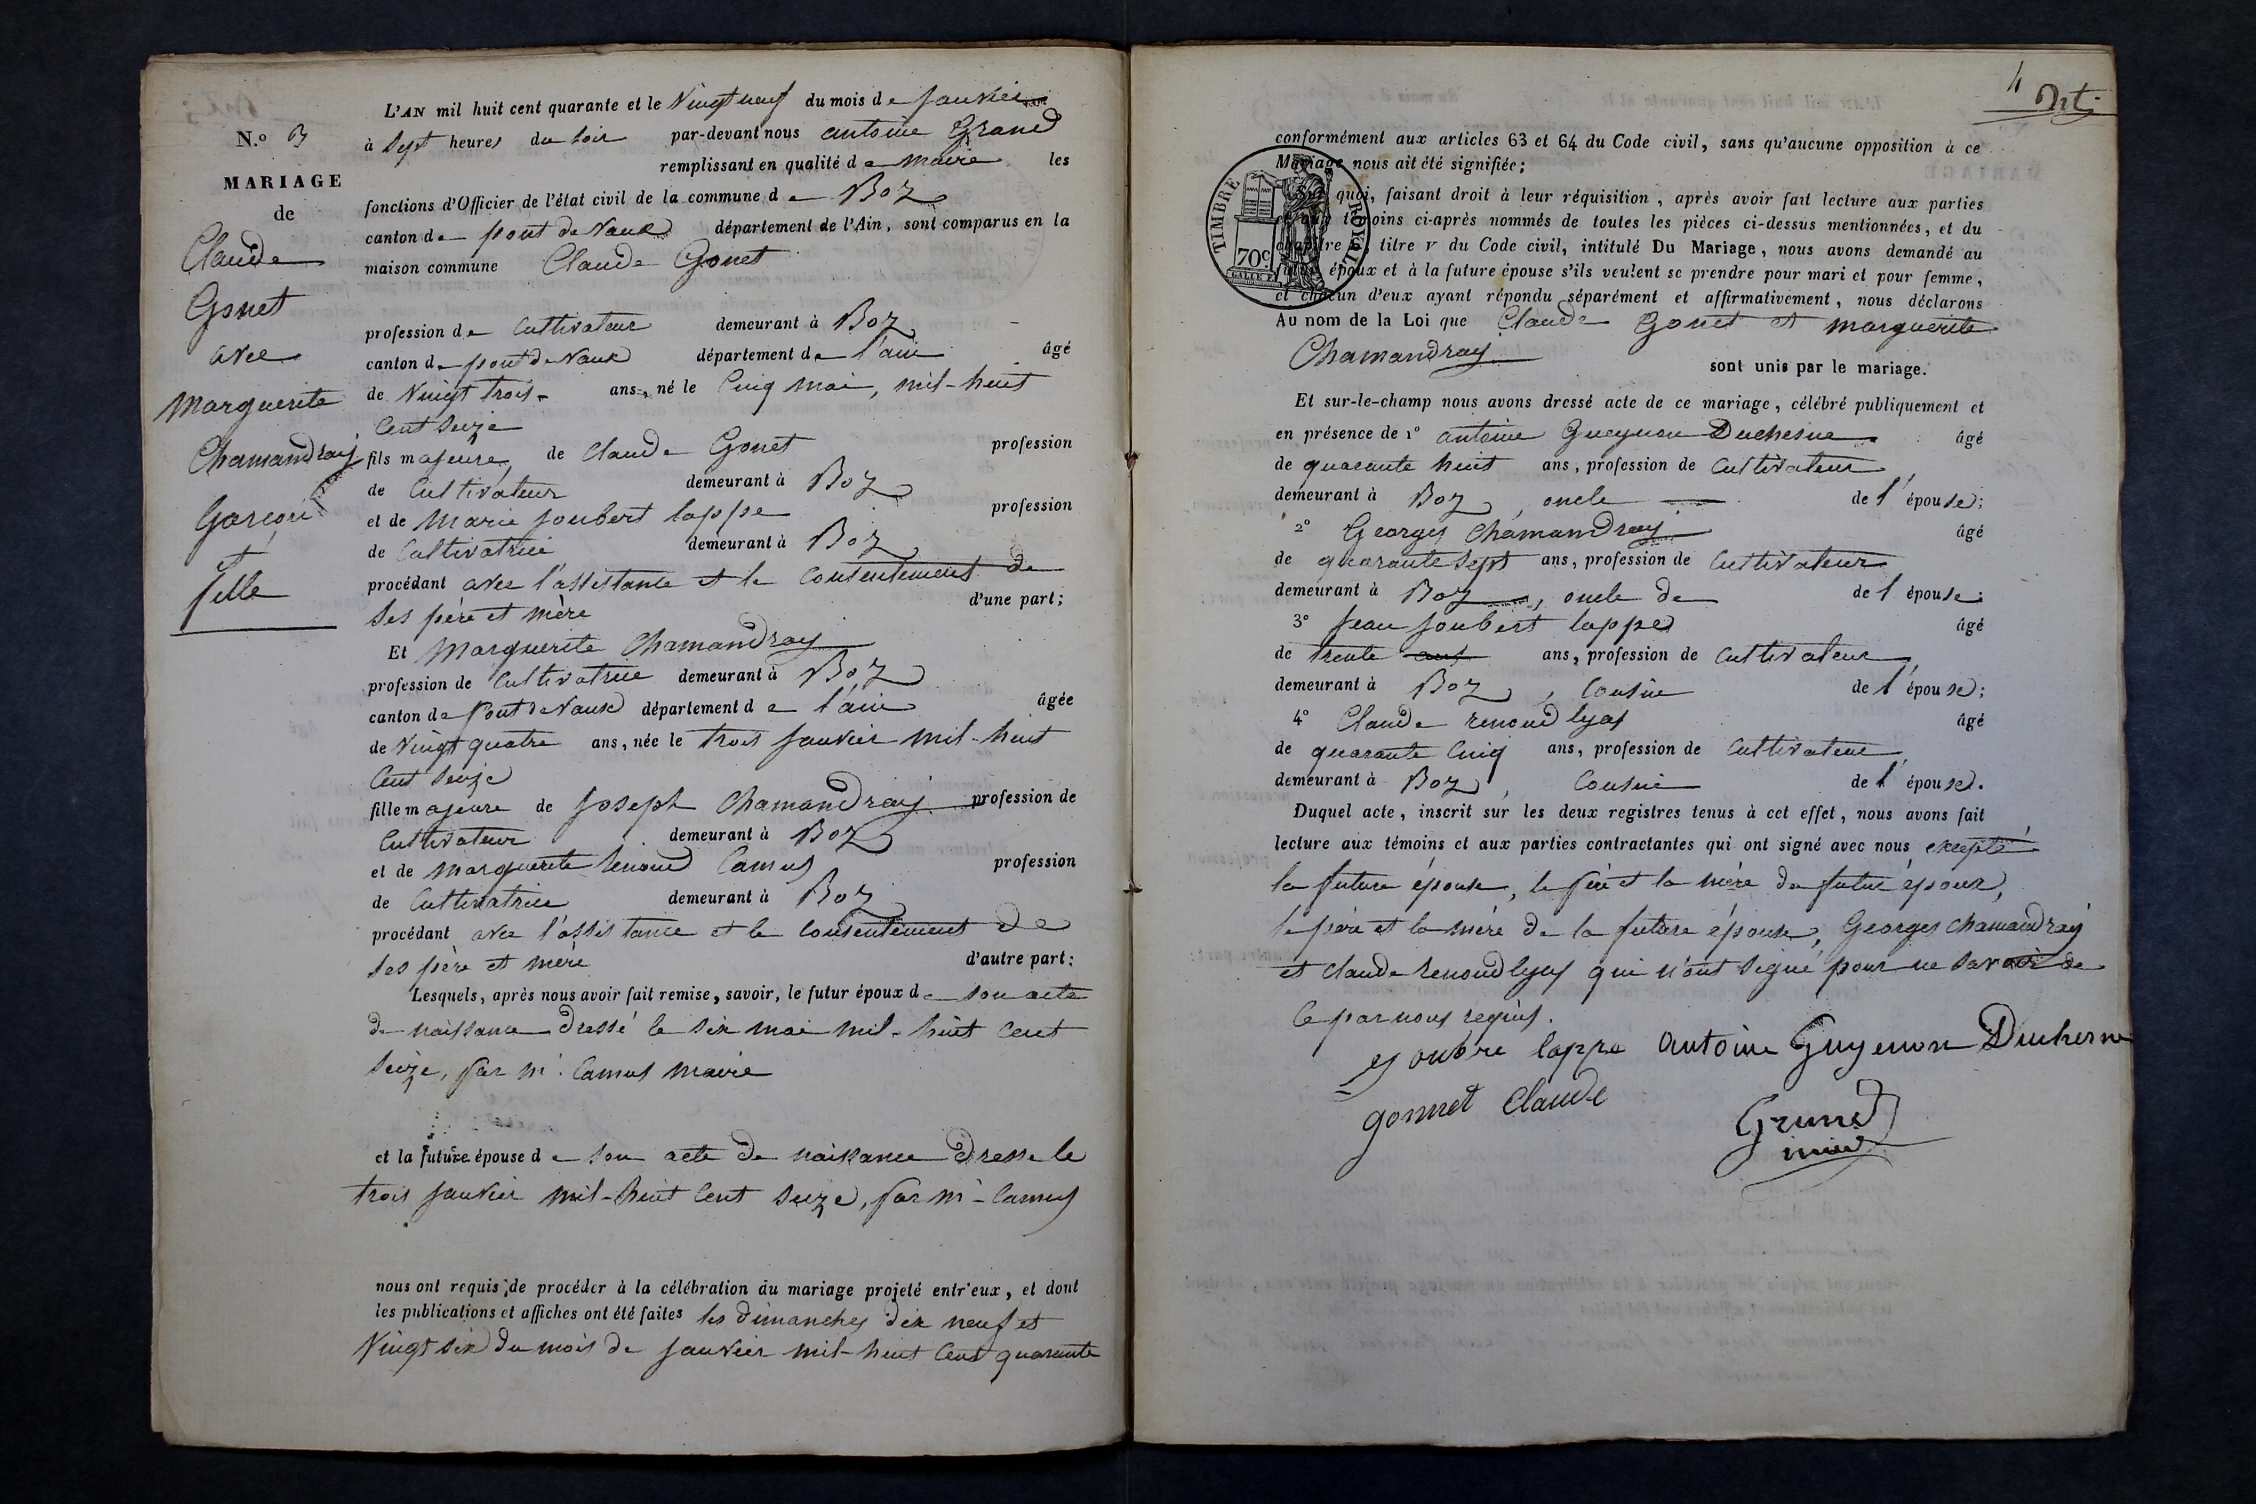 N.o 3
MARIAGE
de
Claude
Gonet
avec
Marguerite
Chamandray
Garçon
et
fille
L'AN mil huit cent quarante et le Vingt neuf du mois de Janvier
à Sept heures du soir par-devant nous antoine Grand
remplissant en qualité de maire les
fonctions d'Officier de l'état civil de la commune de Boz
canton de pont de Vaux département de l'Ain, sont comparus en la
maison commune Claude Gonet
profession de Cultivateur demeurant à Boz
canton de pont de Vaux département de l'ain âgé
de Vingt trois ans, né le Cinq mai, mil-huit
Cent Seize
fils majeure, de Claude Gonet profession
de Cultivateur demeurant à Boz
et de Marie Joubert lappe profession
de Cultivatrice demeurant à Boz
procédant avec l'assistance et le consentement de
ses père et mère d'une part;
Et Marguerite Chamandray
profession de Cultivatrice demeurant à Boz
canton de Pont de Vaux département de l'ain âgée
de Vingt quatre ans, née le trois Janvier mil-huit
Cent Seize
fille majeure de Joseph Chamandray profession de
Cultivateur demeurant à Boz
et de marguerite Renoud Camus profession
de Cultivatrice demeurant à Boz
procédant avec l'assistance et le consentement de
ses père et mère d'autre part:
Lesquels, après nous avoir fait remise, savoir, le futur époux de son acte
de naissance dressé le six mai mil-huit Cent
Seize, par mr. Camus maire
et la future épouse de son acte de naissance dressé le
trois Janvier mil-huit Cent Seize, par mr Camus
nous ont requis de procéder à la célébration du mariage projeté entr'eux, et dont
les publications et affiches ont été faites les dimanches dix neuf et
Vingt six du mois de Janvier mil-huit Cent quarante
4
conformément aux articles 63 et 64 du Code civil, sans qu'aucune opposition à ce
Mariage nous ait été signifiée;
TIMBRE ROYAL
70c
quoi, faisant droit à leur réquisition, après avoir fait lecture aux parties
témoins ci-après nommés de toutes les pièces ci-dessus mentionnées, et du
chapitre titre v du Code civil, intitulé Du Mariage, nous avons demandé au
futur époux et à la future épouse s'ils veulent se prendre pour mari et pour femme,
et chacun d'eux ayant répondu séparément et affirmativement, nous déclarons
Au nom de la Loi que Claude Gonet et marguerite
Chamandray sont unis par le mariage.
Et sur-le-champ nous avons dressé acte de ce mariage, célébré publiquement et
en présence de 1o antoine Guyenon Duchesne âgé
de quarante huit ans, profession de Cultivateur
demeurant à Boz oncle de l'épouse;
2o Georges Chamandray âgé
de quarante sept ans, profession de Cultivateur
demeurant à Boz, oncle de de l'épouse;
3o Jean Joubert lappe âgé
de trente ans, profession de Cultivateur
demeurant à Boz, Cousin de l'épouse;
4o Claude renoud lyat âgé
de quarante Cinq ans, profession de Cultivateur
demeurant à Boz, Cousin de l'épouse.
Duquel acte, inscrit sur les deux registres tenus à cet effet, nous avons fait
lecture aux témoins et aux parties contractantes qui ont signé avec nous excepté
la future épouse, le père et la mère du futur époux,
le père et la mère de la future épouse, Georges chamandray
et Claude Renoud lyat qui n'ont signé pour ne savoir de
ce par nous requis.
joubre lappe antoine Guyenon Duchesne
gonnet Claude
Grand
maire